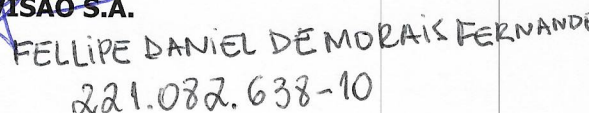 ISÃO S.A.
FELLIPE DANIEL DE MORAIS FERNANDE
221.082.638-10